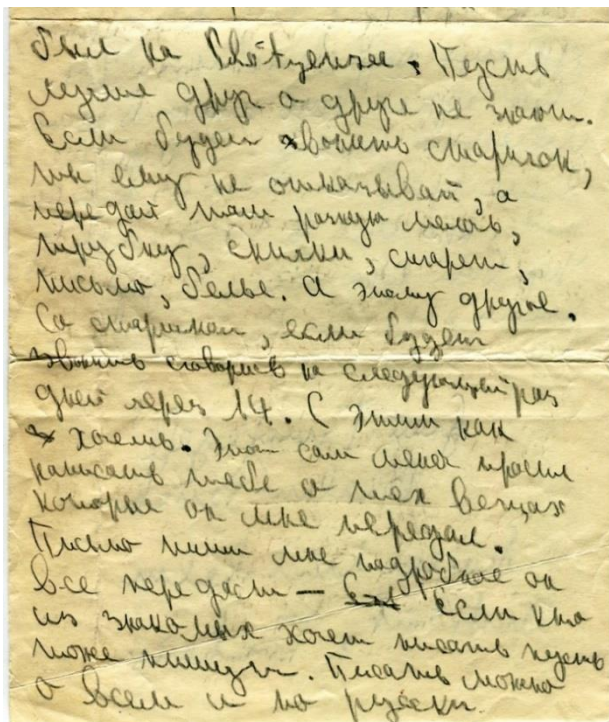 был на свободе. Пусть
лучше друг о друге не знают.
Если будет звонить старичок,
ты ему не отказывай, а
передай там разную мелочь,
трубку, спички, сигарет,
письмо, белье. А этому другое.
Со старичком, если будет
звонить сговорись на следующий раз
дней через 14. С этим как
хочешь. Этот сам меня просил
написать тебе о тех вещах
которые он мне передал.
Письмо пиши мне подробное он
все передаст — Если кто
из знакомых хочет писать пусть
тоже пишут. Писать можно
о всем и по русски.